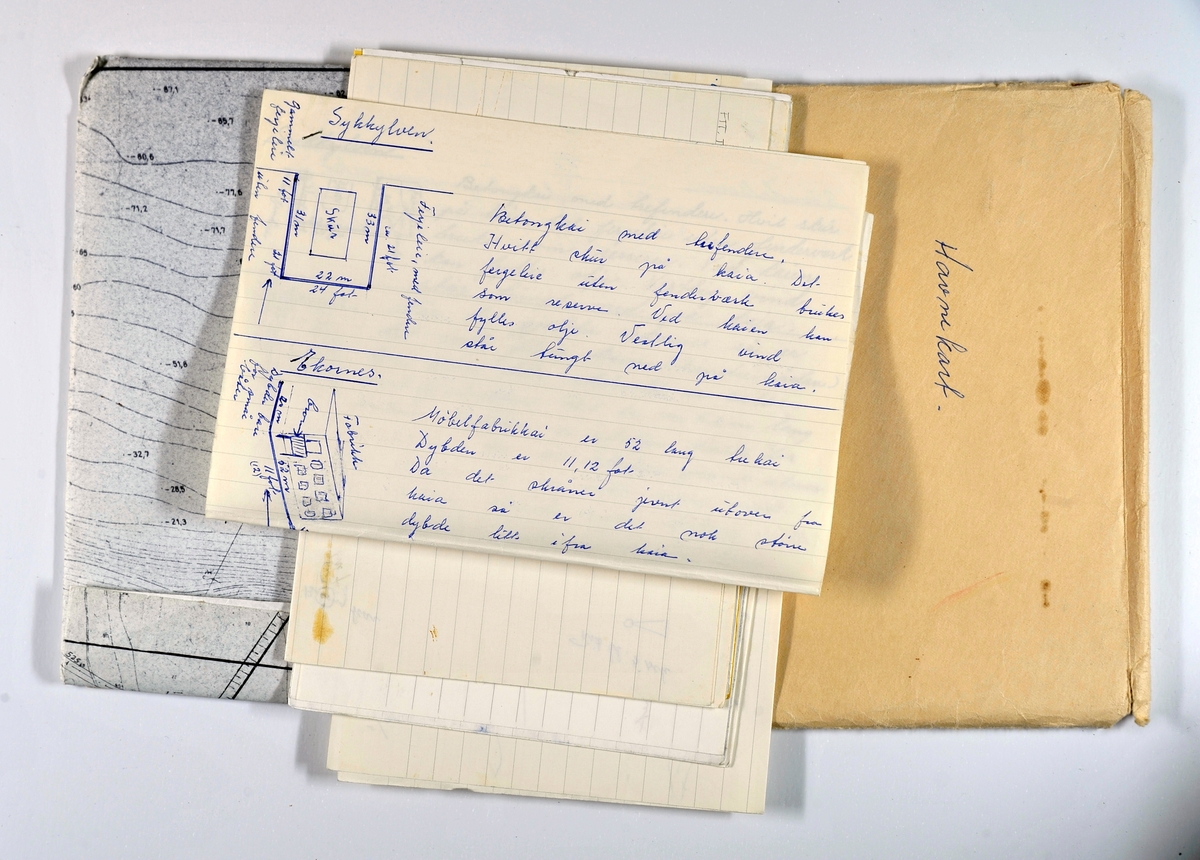 Sykkylven.
Gammelt
fergeleie
uten fendere
11 fot
31 m
Skur
33 m
22 m
24 fot
21 fot
ca 21 fot
Fergeleie, med fendere
Betongkai med
Hvitt skur på kaia. Det
fergeleie uten fenderverk brukes
som reserve. Ved kaien kan
fylles olje. Vestlig vind
står tungt ned på kaia.
Ekornes.
Dybde bare
Fabrikk
52 m
11 fot
(12)
Møbelfabrikkai er 52 lang trekai
Dybden er 11,12 fot
Da det skråner jevnt utover fra
kaia så er det nok større
dybde litt ifra kaia.
Havnekart.
-67,1
-65,7
-60,6
-77,6
-71,2
-71,7
-51,6
-32,7
-26,5
-21,3